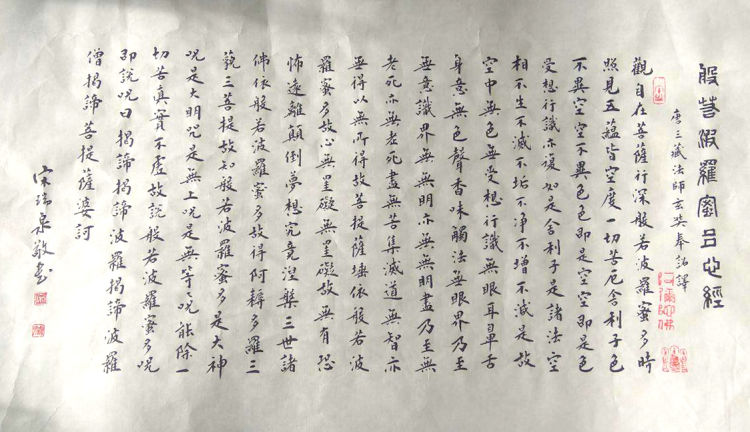 般若波羅蜜多心經
唐三藏法師玄奘奉詔譯
觀自在菩薩行深般若波羅蜜多時
照見五蘊皆空度一切苦厄舍利子色
不異空空不異色色即是空空即是色
受想行識亦復如是舍利子是諸法空
相不生不滅不垢不净不增不減是故
空中無色無受想行識無眼耳鼻舌
身意無色聲香味觸法無眼界乃至
無意識界無無明亦無無明盡乃至無
老死亦無老死盡無苦集滅道無智亦
無得以無所得故菩提薩埵依般若波
羅蜜多故心無罣礙無罣礙故無有恐
怖遠離顛倒夢想究竟涅槃三世諸
佛依般若波羅蜜多故得阿耨多羅三
藐三菩提故知般若波羅蜜多是大神
咒是大明咒是無上咒是無等々咒能除一
切苦真實不虛故說般若波羅蜜多咒
即說咒曰揭諦揭諦波羅揭諦波羅
僧揭諦菩提薩婆訶
宋瑞泉敬書
阿彌陀佛